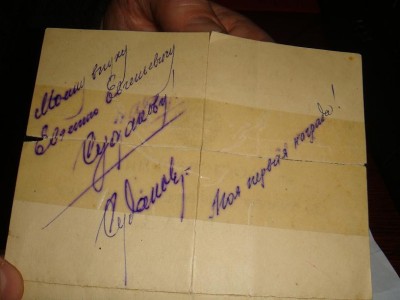 Моему внуку
Евгению Евгениевичу
Судакову!
Судаков
Моя первая награда!